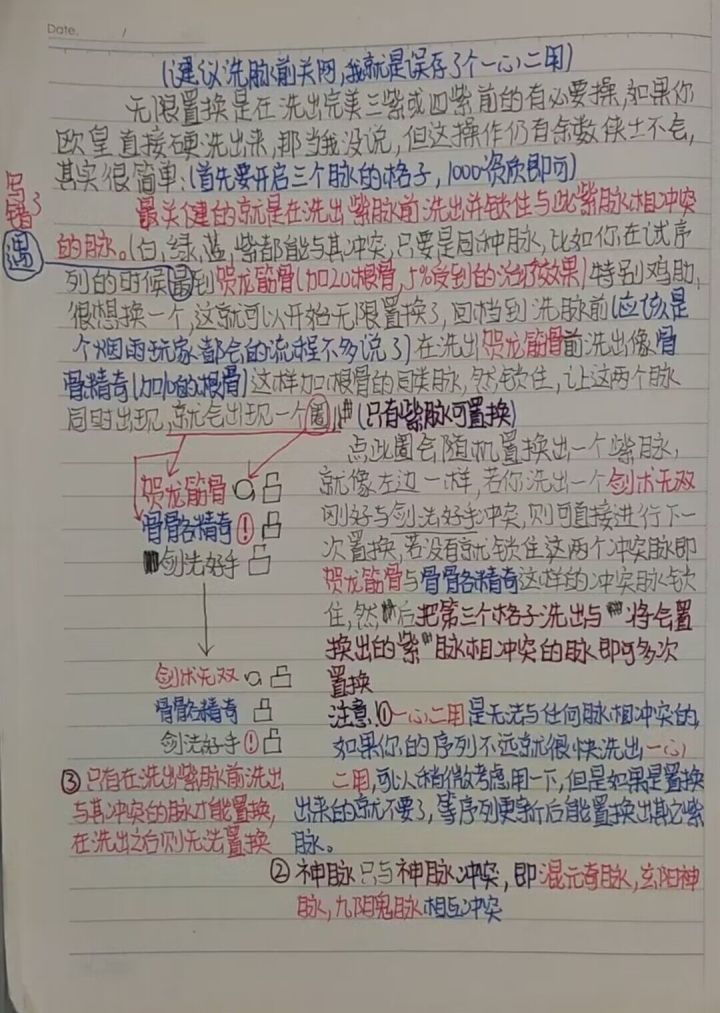 Date. /
(建议洗脉前关网,我就是误存了个一心二用)
无限置换是在洗出完美三紫或四紫前的有必要操,如果你
欧皇直接硬洗出来,那当我没说,但这操作仍有余数侠士不会,
其实很简单:(首先要开启三个脉的格子,1000资质即可)
写错了
最关健的就是在洗出紫脉前洗出并锁住与此紫脉相冲突
的脉。(白,绿,蓝,紫都能与其冲突,只要是同种脉,比如你在试序
遇
列的时候到贺龙筋骨(加20根骨,5%受到的治疗效果)特别鸡肋,
很想换一个,这就可以开始无限置换了,回档到洗脉前(应该是
个烟雨玩家都会的流程不多说了)在洗出贺龙筋骨前洗出像骨
骨精奇(加10的根骨)这样加根骨的同类脉,然锁住,让这两个脉
同时出现,就会出现一个圈,(只有紫脉可置换)
点此圈会随机置换出一个紫脉,
贺龙筋骨
就像左边一样,若你洗出一个剑术无双
骨骼精奇!
刚好与剑法好手冲突,则可直接进行下一
剑法好手
次置换,若没有就锁住这两个冲突脉即
贺龙筋骨与骨骼精奇这样的冲突脉锁
住,然后把第三个格子洗出与将会置
换出的紫脉相冲突的脉即可多次
置换
剑术无双
骨骼精奇
剑法好手!
注意:①一心二用是无法与任何脉相冲突的,
如果你的序列不远就很快洗出一心
二用,可以稍微考虑用一下,但是如果是置换
出来的就不要了,等序列更新后能置换出其它紫
脉。
③只有在洗出紫脉前洗出
与其冲突的脉才能置换,
在洗出之后则无法置换
②神脉只与神脉冲突,即混元奇脉,玄阳神
脉,九阴鬼脉相互冲突